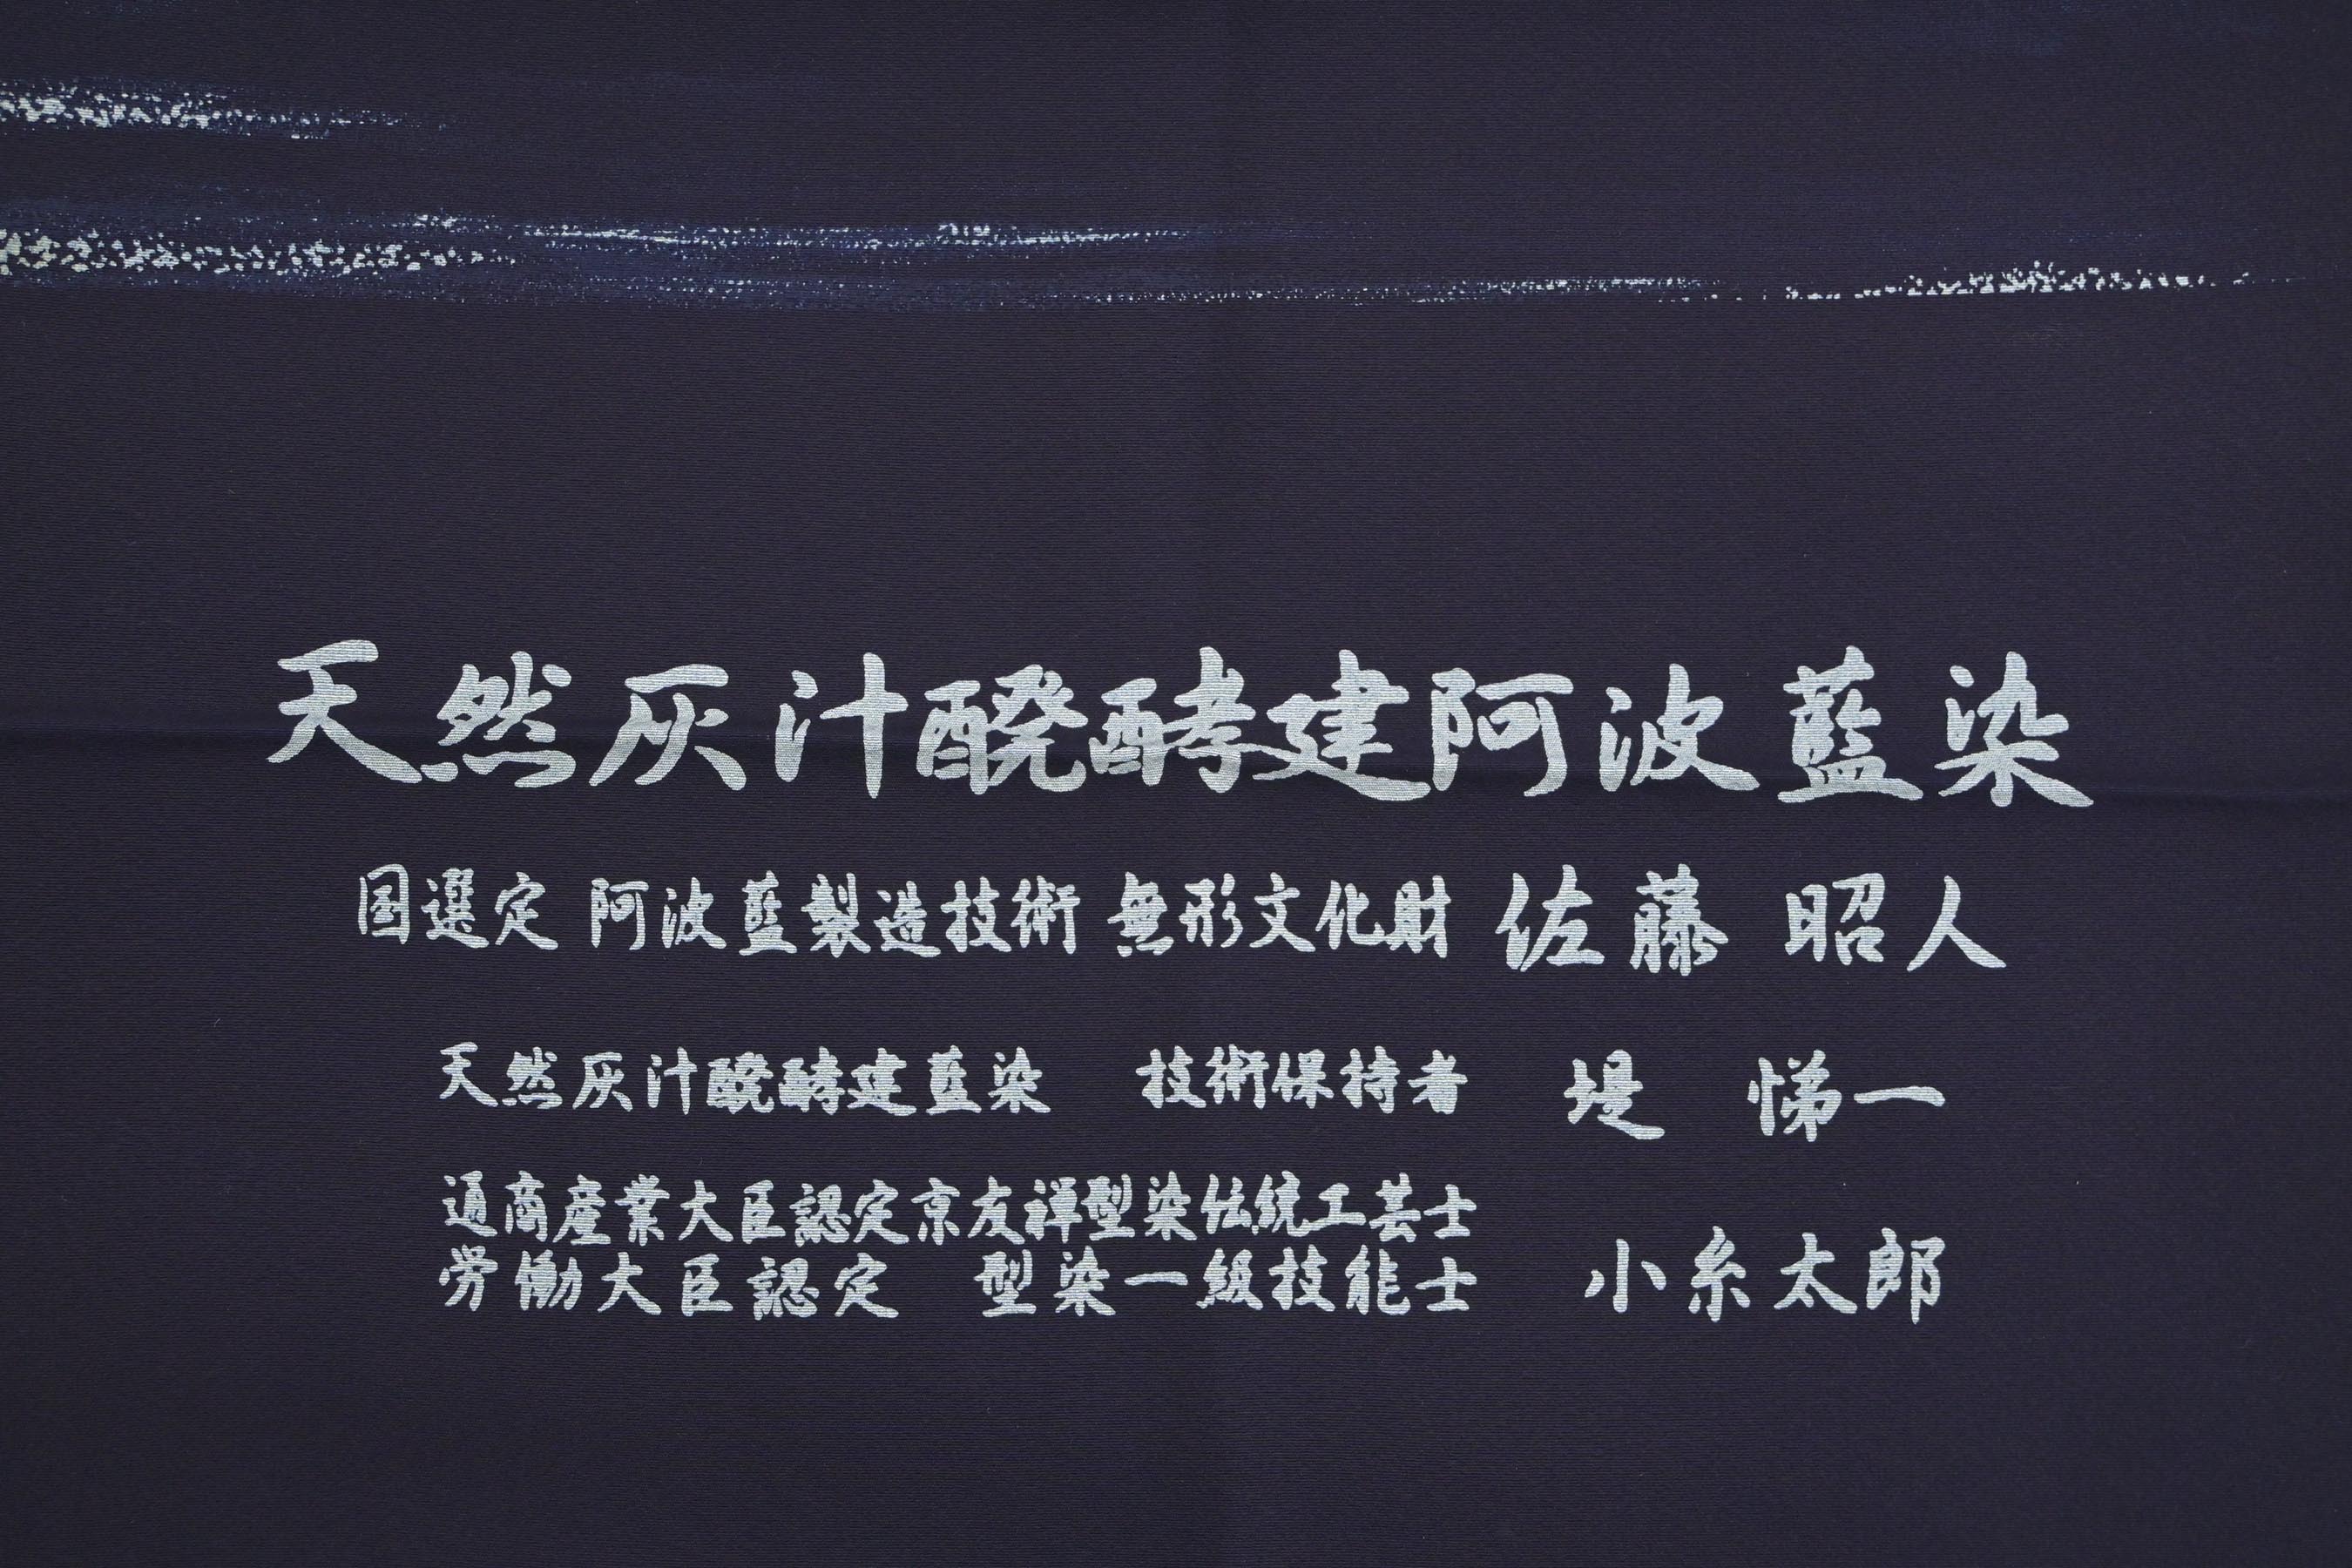 天然灰汁醗酵建阿波藍染
国選定 阿波藍製造技術 無形文化財 佐藤 昭人
天然灰汁醗酵建藍染 技術保持者 堤 悌一
通商産業大臣認定京友禅型染伝統工芸士
労働大臣認定 型染一級技能士 小糸太郎